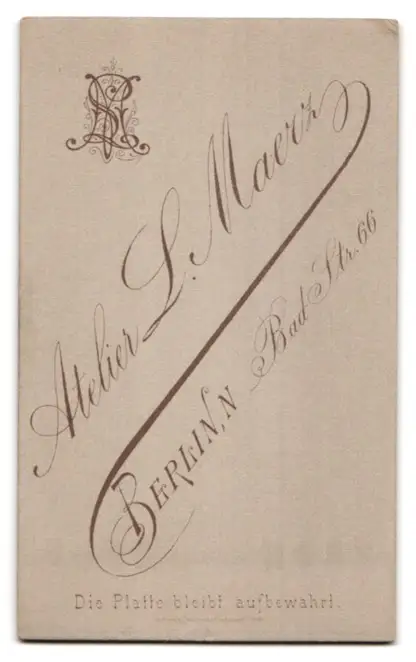 Atelier L. Maerz
BERLIN, N
Bad Str. 66
Die Platte bleibt aufbewahrt.